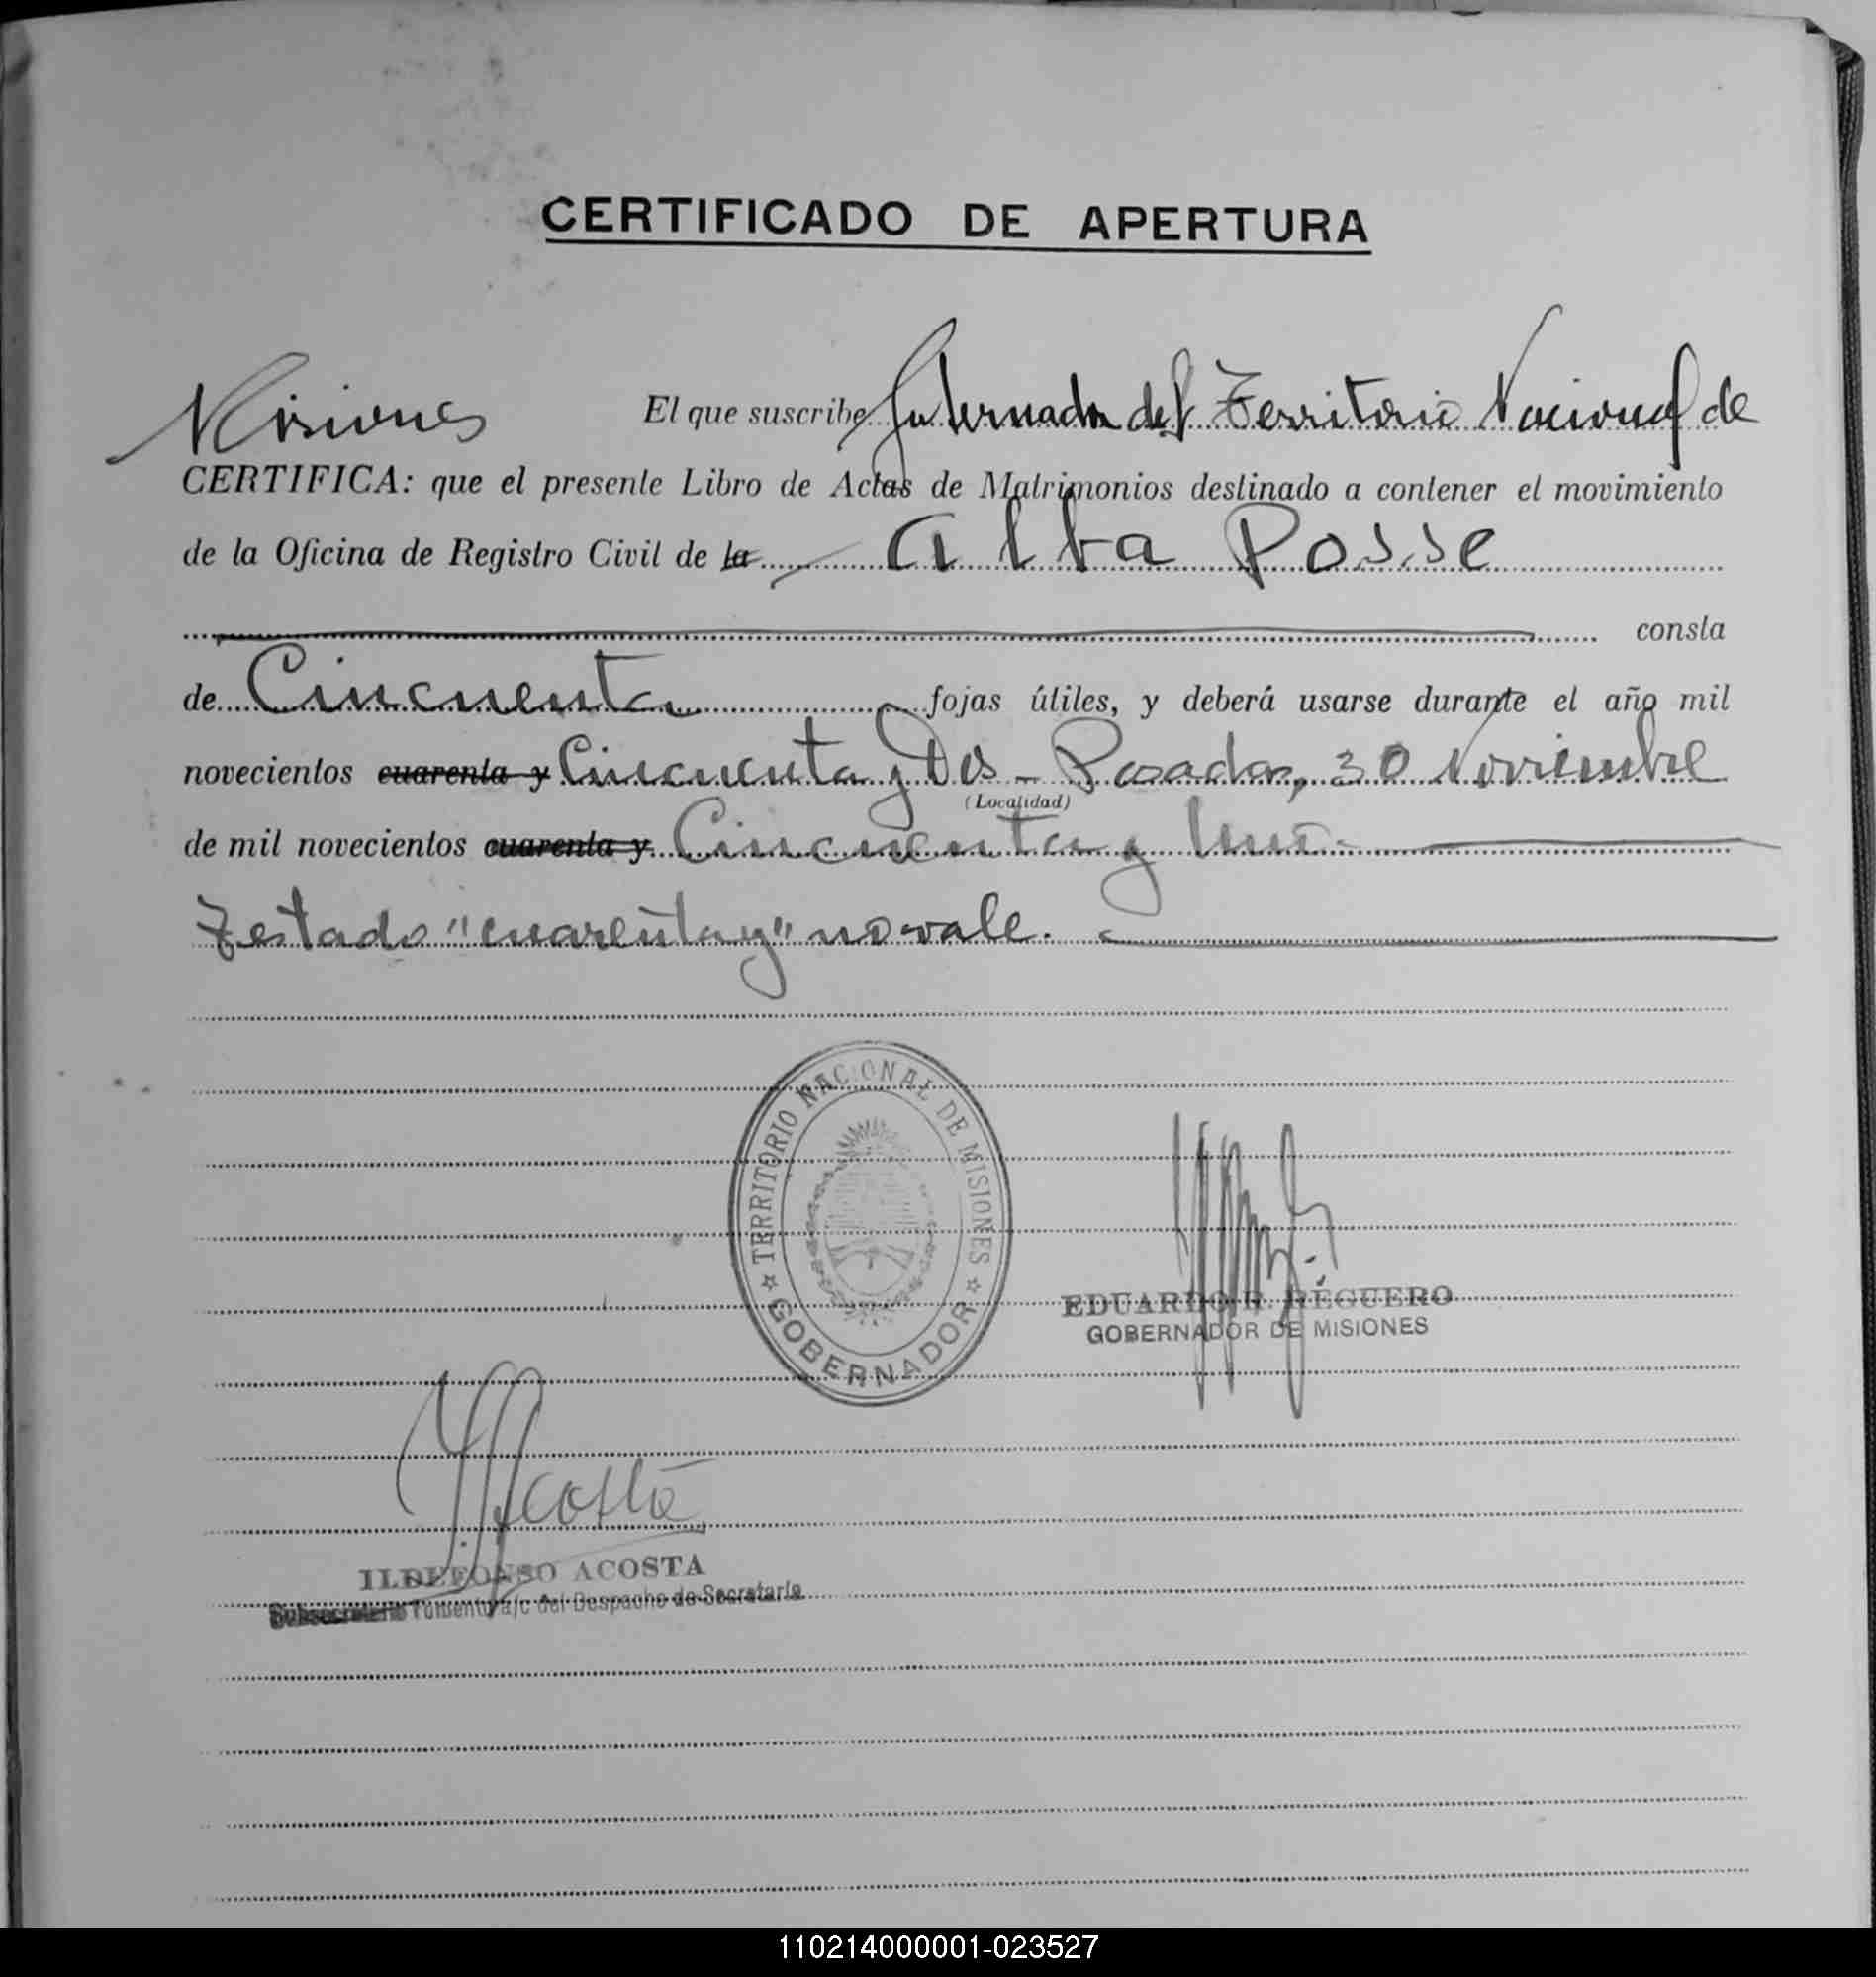 CERTIFICADO DE APERTURA
El que suscribe Gobernador del Territorio Nacional de
Misiones
CERTIFICA: que el presente Libro de Actas de Matrimonios destinado a contener el movimiento
de la Oficina de Registro Civil de la Alba Posse
consta
de Cincuenta fojas útiles, y deberá usarse durante el año mil
novecientos cuarenta y Cincuenta y Dos - Posadas, 30 Noviembre
(Localidad)
de mil novecientos cuarenta y Cincuenta y Uno.-
Testado "cuarenta y" no vale.
TERRITORIO NACIONAL DE MISIONES
GOBERNADOR
EDUARDO R. REGUERO
GOBERNADOR DE MISIONES
Acosta
ILDEFONSO ACOSTA
Subsecretario Fomento a/c del Despacho de Secretaría
110214000001-023527